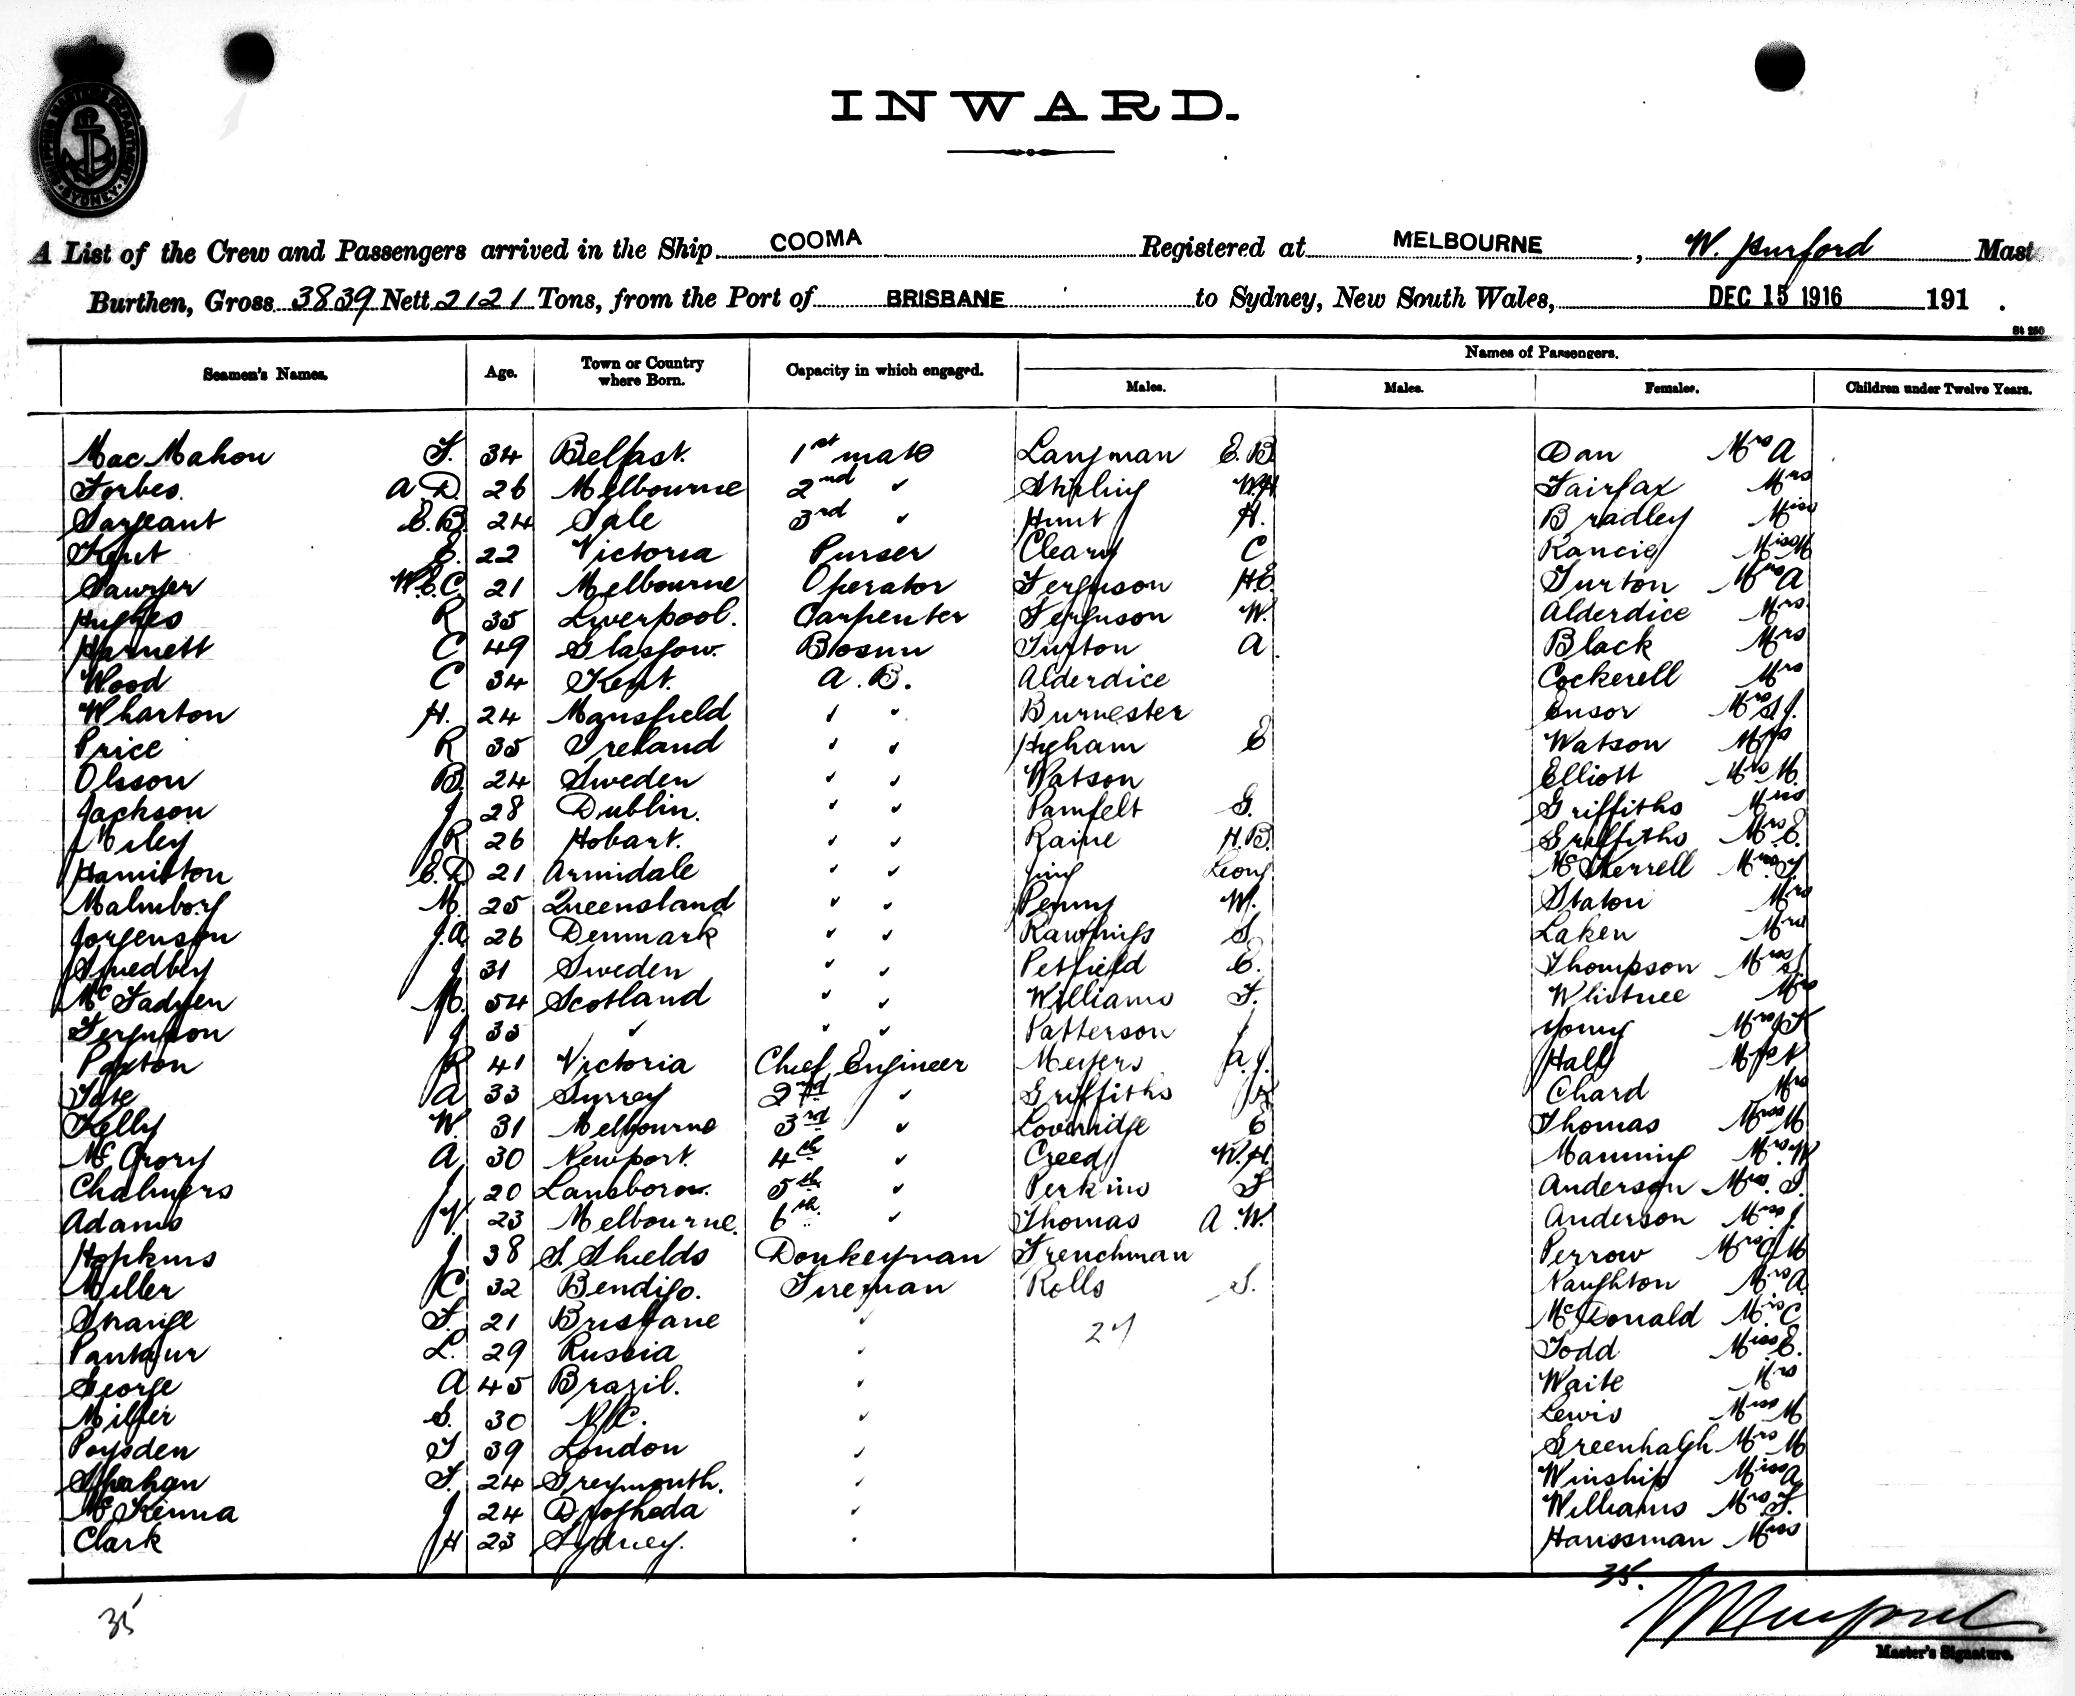 SHIPPING MASTER'S DEPARTMENT SYDNEY
INWARD.
A List of the Crew and Passengers arrived in the Ship COOMA Registered at MELBOURNE, W. Hurford Mast
Burthen, Gross 3839 Nett 2121 Tons, from the Port of BRISBANE to Sydney, New South Wales, DEC 15 1916 191 .
St 250
Names of Passengers.
Seamen's Names. Age. Town or Country where Born. Capacity in which engaged. Males. Males. Females. Children under Twelve Years.
Mac Mahon F. 34 Belfast. 1st mate Langman E.B. Dan Mrs A
Forbes. A D. 26 Melbourne 2nd " Stirling W.H. Fairfax Mrs
Sargeant E.B. 24 Sale 3rd " Hunt H. Bradley Miss
Kent E. 22 Victoria Purser Cleary C Rancie Miss M
Sawyer W.E.C. 21 Melbourne Operator Ferguson H.E. Turton Mrs A
Hughes R 35 Liverpool. Carpenter Ferguson W. Alderdice Mrs.
Harnett C 49 Glasgow. Bosun Turton A. Black Mrs
Wood C 34 Kent. A. B. Alderdice Cockerell Mrs
Wharton H. 24 Mansfield " " Burnester Ensor Mrs S.J.
Price R 35 Ireland " " Higham E Watson Mrs
Olsson B. 24 Sweden " " Watson Elliott Mrs M.
Jackson J 28 Dublin. " " Pamfelt G. Griffiths Miss
Miley J R 26 Hobart. " " Raine H.B. Griffiths Mrs E.
Hamilton E.D. 21 Armidale " " Jing Leong McKerrell Mrs. J.
Malmborg M. 25 Queensland " " Penny W. Staton Mrs
Jorgenson J.A. 26 Denmark " " Rawlings S. Laken Mrs
Smedberg J 31 Sweden " " Petfield E. Thompson Mrs J
McFadyen M. 54 Scotland " " Williams F. Mrs
Ferguson J 35 " " " Patterson J Young Mrs J K
Paxton R 41 Victoria Chief Engineer Meyers A.J. Hall
Tate A 33 Surrey 2nd " Griffiths Chard Mrs
Kelly W. 31 Melbourne 3rd " Loveridge E Thomas Miss M
McGrory A 30 Newport. 4th " Creed W.H. Manning Mrs. W
Chalmers J 20 5th " Perkins F Anderson Mrs. J.
Adams J.V. 23 Melbourne. 6th " Thomas A.W. Anderson Miss J.
Hopkins J 38 S. Shields Donkeyman Frenchman Perrow M
Miller J C. 32 Bendigo. Fireman Rolls S. Naughton Mrs A.
Strange F. 21 Brisbane " 27 McDonald Mis C.
L. 29 Russia " Todd Miss E.
George A 45 Brazil. " Waite Mrs
Miller S. 30 N/C. " Lewis Miss M
Poysden T 39 London " Greenhalgh Mrs M
Sheahan F. 24 Greymouth. " Winship Miss A.
McKenna J 24 Drogheda " Williams Mrs. F.
Clark J H 23 Sydney. " Haussman Miss
35 35.
Master's Signature.